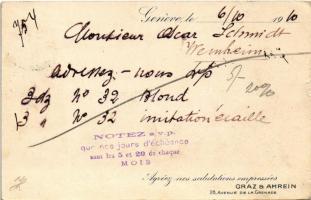 Genève, le 6/10 1910
Monsieur Oscar Schmidt
Weinheim
adressez-nous svp
3 dz N° 32 Blond
3 " N° 32 imitation écaille
NOTEZ s.v.p.
que nos jours d'échéance
sont les 5 et 20 de chaque
MOIS
Agréez mes salutations empressées
GRAZ & AMREIN
28, AVENUE DE LA GRENADE